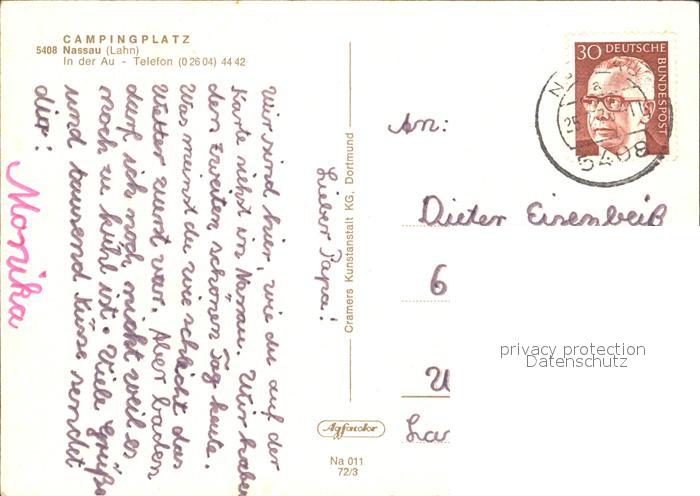 CAMPINGPLATZ
5408 Nassau (Lahn)
In der Au - Telefon (0 26 04) 44 42
Lieber Papa!
Wir sind hier, wie du auf der
Karte siehst in Nassau. Wir haben
den zweiten schönen Tag heute.
Was meinst du wie schlecht das
Wetter zuerst war. Aber baden
darf ich noch nicht weil es
noch zu kühl ist. Viele Grüße
und tausend Küsse sendet
dir!
Monika
Cramers Kunstanstalt KG, Dortmund
Agfacolor
Na 011
72/3
30 DEUTSCHE
BUNDESPOST
5408
An:
Dieter Eisenbeiß
6
privacy protection
Datenschutz